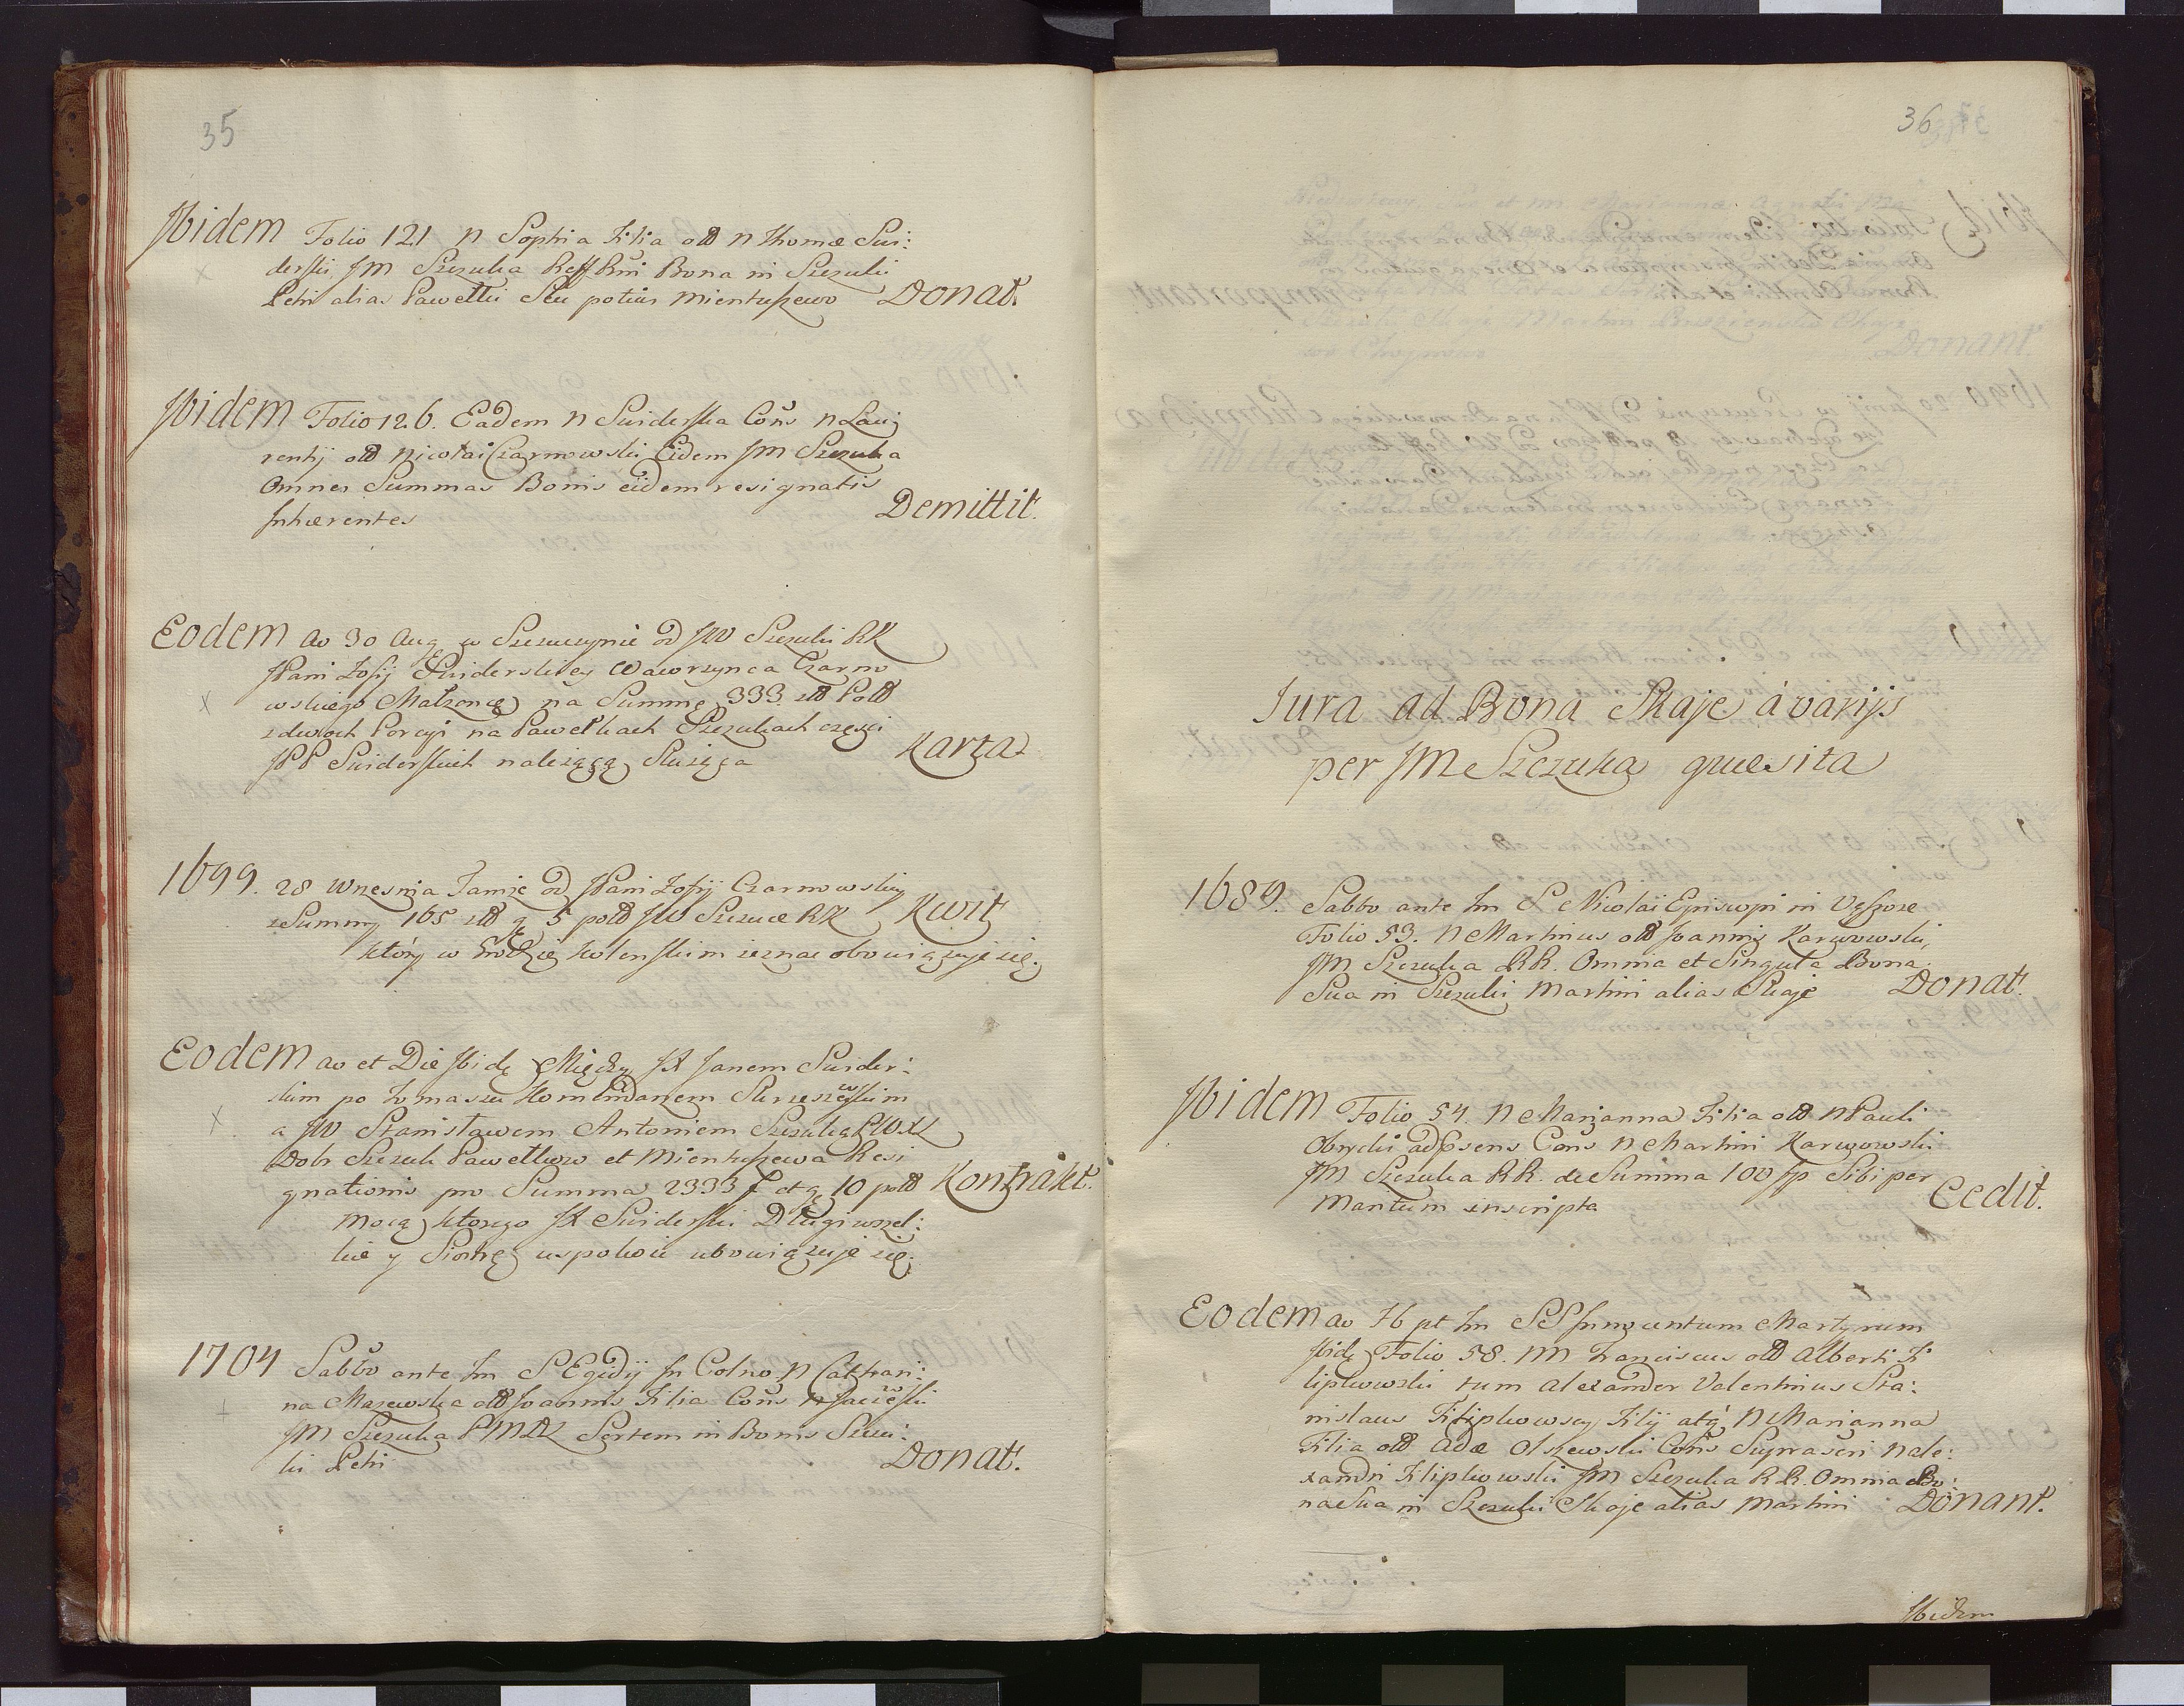 35
Ibidem Folio 121 N Sophia Filia olð N Thomæ Sui:
derski, JM Szczuka Reff Rni Bona in Szczuki
Petri alias Pawełki Seu potius Mientuszewo Donat.
Ibidem Folio 126. Eadem N Suiderska Cons N Lau
rentij olð Nicolai Czarnowski Eidem JM Szczuka
Omnes Summas Bonis eidem resignatis
Inhærentes Demittit.
Eodem ao 30 Aug w Szczuczynie od JW Szczuki RK
JPani Zofij Suiderskiey Wawrzynca Czarno
wskiego Małzonce na Summę 333 złð Polð
z dwoch Porcyi na Pawełkach Szczukach częsci
JPP Suiderskich nalezącą Słuząca Karta
1699. 28 Wrzesnia Tamże od JPani Zofij Czarnowskiey
z Summy 165 złð g 5 polð JW Szczuce RK Kwit
który w Grodzie Kolenskim zeznac obowiązuje się.
Eodem ao et Die Ibidę Między JP Janem Suider:
skim po Tomaszu Kommendanem Skrzeszewskim
a JW Stanisławem Antoniem Szczuką PWXL
Dobr Szczuk Pawełkow et Mientuszewa Resi
gnationis pro Summa 2333 f et g 10 polð Kontrakt.
Mocą ktorego JP Suiderski Długi wszel:
kie y Siostrę uspokoic obowiązuje się.
1704 Sabbo ante Fm S Egidij in Colno N Cathari:
na Mazewska olð Joannis Filia Cons N
JM Szczuka PMDL Sortem in Bonis Szczu:
ki Petri Donat.
36
Jura ad Bona Skaje á varijs
per JM Szczuka quæsita
1689. Sabbo ante Fm S Nicolai Episcopi in Vąszosze
Folio 53. N Martinus olð Joannis Karwowski,
JM Szczuka RR. Omnia et Singula Bona
Sua in Szczuki Martini alias Skaje Donat.
Ibidem Folio 54. N Marianna Filia olð N Pauli
Obrycki adpsens Cons N Martini Karwowski
JM Szczuka RR. de Summa 100 fp Sibi per
Maritum inscripta Cedit.
Eodem ao Hb pt Fm SS Innocentum Martyrum
Ibidę Folio 58. NN Franciscus olð Alberti Fi
lipkowski tum Alexander Valentinus Sta:
nislaus Filipkowscy Filij atq N Marianna
Filia olð Adæ Olszewski Cons Suprascri N Ale:
xandri Filipkowski JM Szczuka RR Omnia Bo:
na Sua in Szczuki Skaje alias Martini Donant.
Ibidem